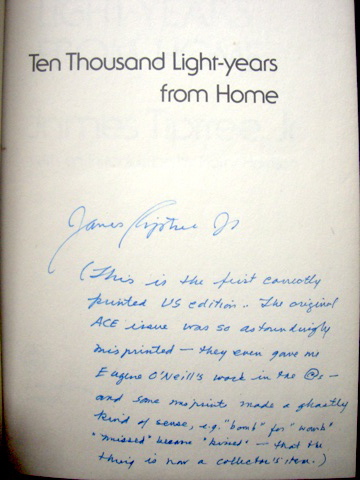 Ten Thousand Light-years
from Home
James Tiptree Jr
(This is the first correctly
printed US edition.. The original
ACE issue was so astoundingly
misprinted — they even gave me
Eugene O'Neill's work in the ©s —
and some misprints made a ghastly
kind of sense, e.g. "bomb" for "womb"
"missed" became "kissed" — that the
thing is now a collector's item.)